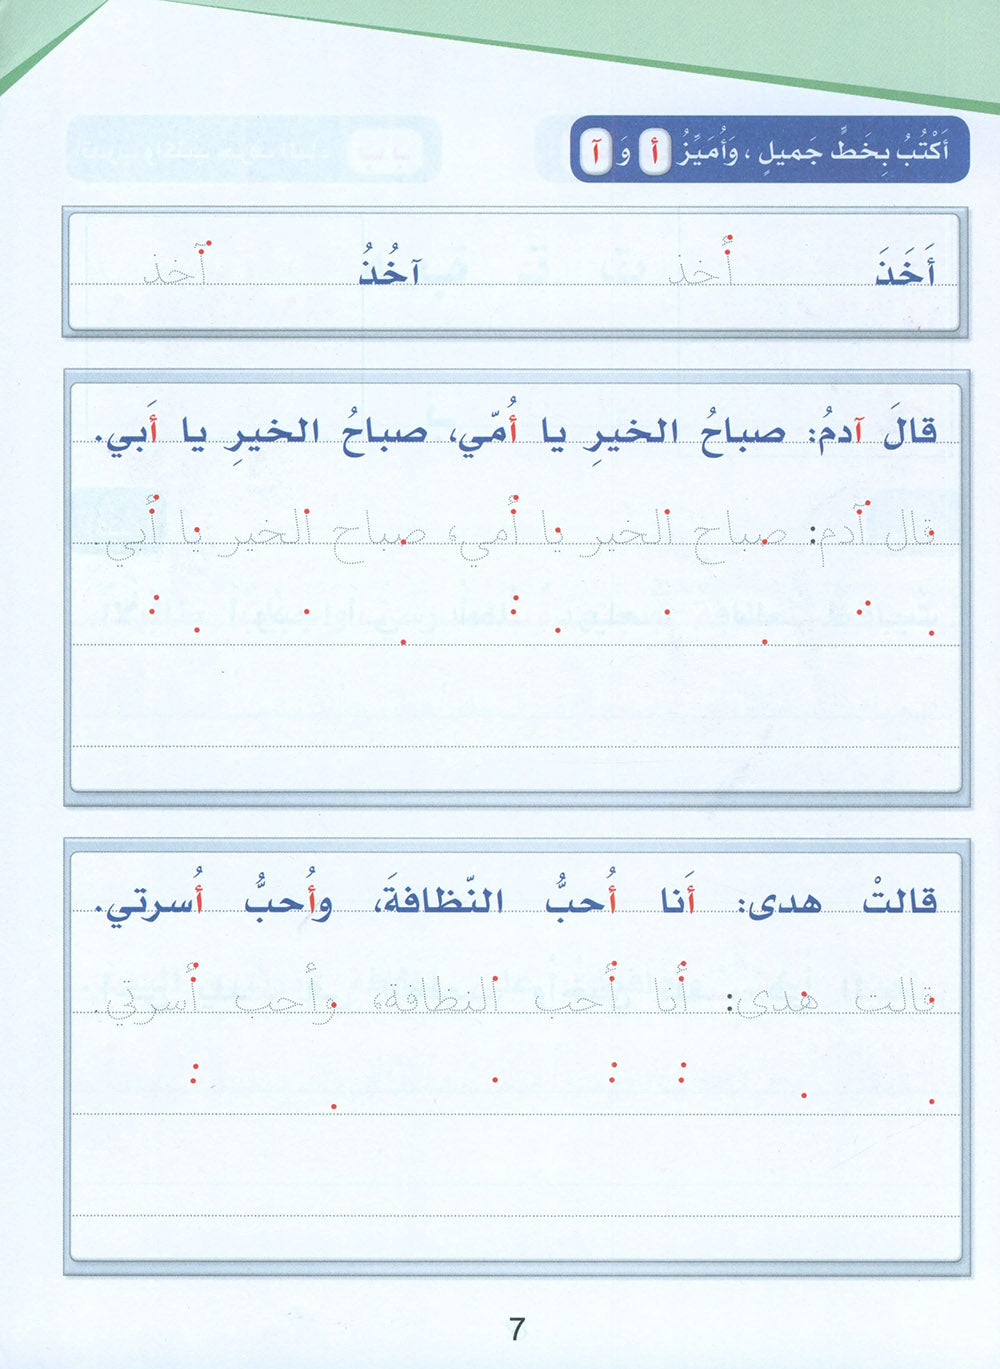 أَكْتُبُ بِخَطٍّ جَميلٍ ، وَأُمَيِّزُ أ وَ آ
أَخَذَ أخذ آخُذُ آخذ
قالَ آدمُ: صباحُ الخيرِ يا أُمّي، صباحُ الخيرِ يا أَبي.
قال آدم: صباح الخير يا أمي، صباح الخير يا أبي.
قالتْ هدى: أَنا أُحبُّ النّظافةَ، وأُحبُّ أُسرتي.
قالت هدى: أنا أحب النظافة، وأحب أسرتي.
7